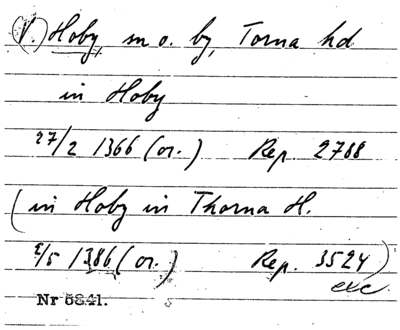 (V.) Hoby, sn o. by, Torna hd
in Hoby
27/2 1366 (or.) Rep. 2788
(in Hoby in Thorna H.
2/5 1386 (or.) Rep. 3524)
exc.
Nr 5841.